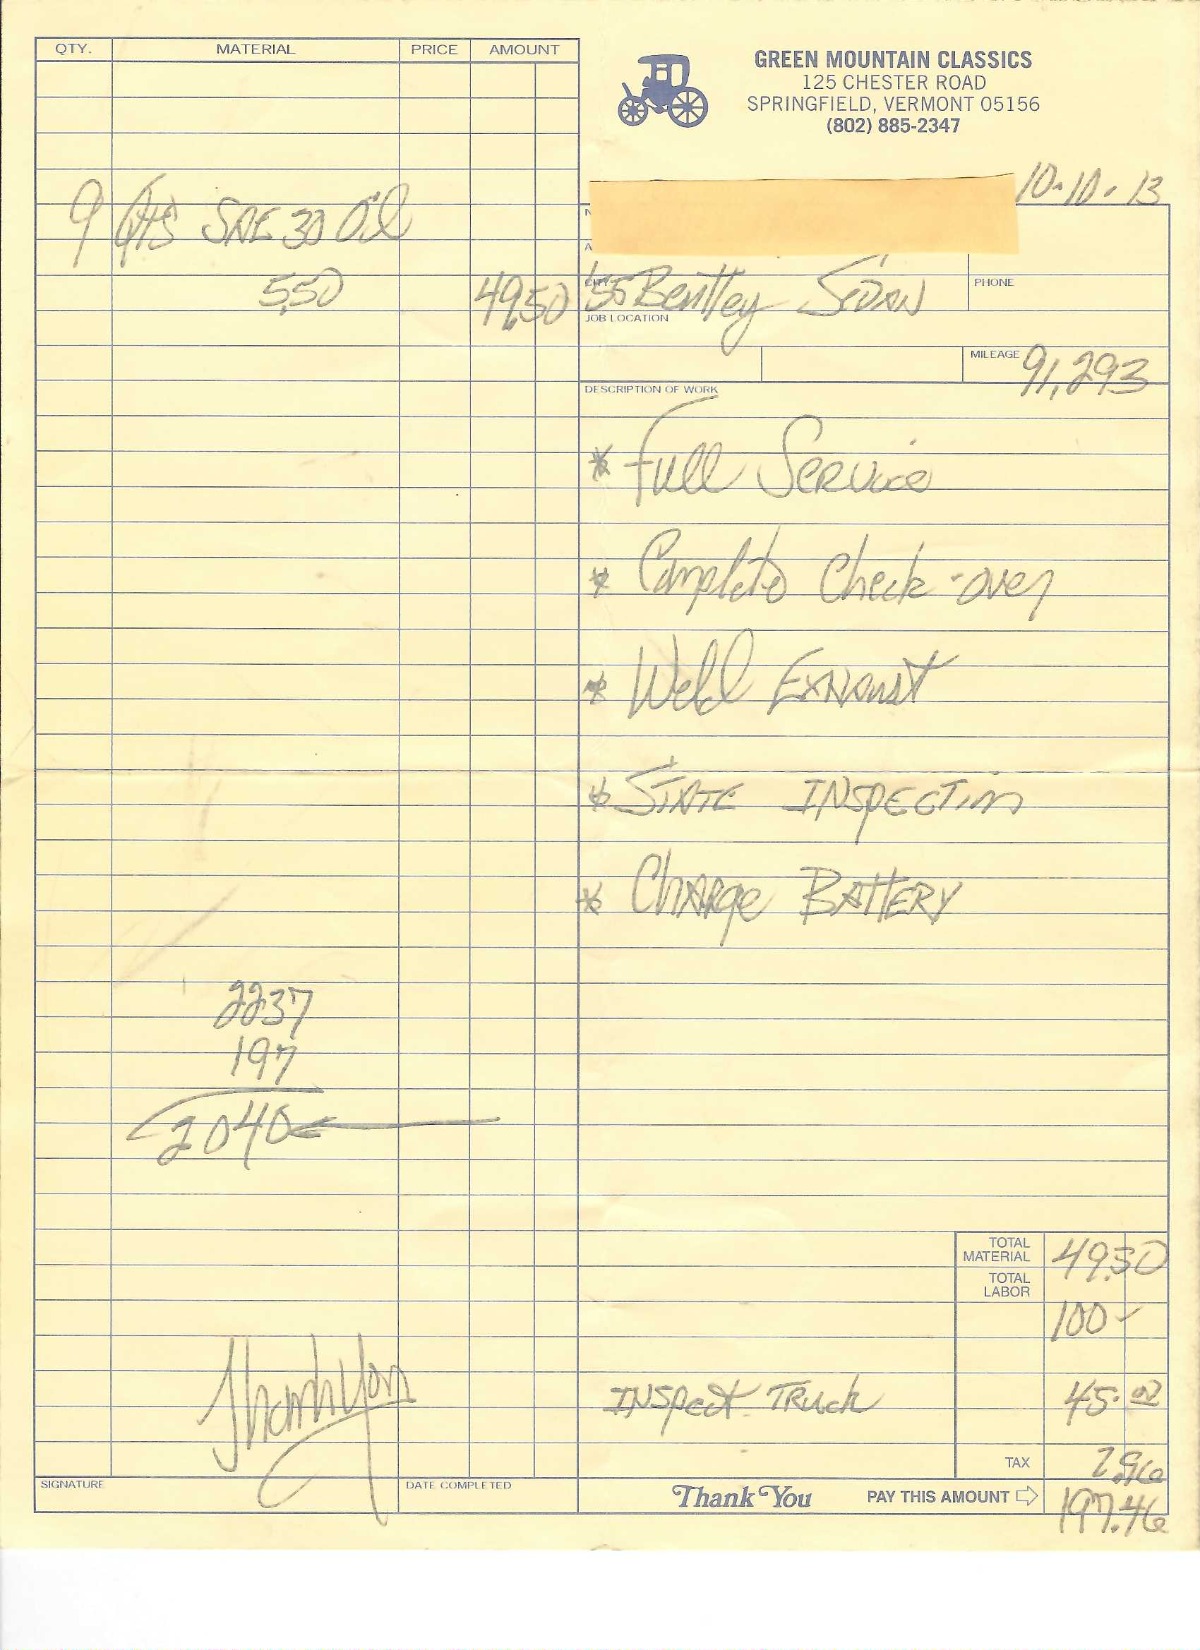 QTY. MATERIAL PRICE AMOUNT
GREEN MOUNTAIN CLASSICS
125 CHESTER ROAD
SPRINGFIELD, VERMONT 05156
(802) 885-2347
10-10-13
9 Qts SAE 30 Oil
5.50 49.50
N
A
CITY
'55 Bentley SEDAN
PHONE
JOB LOCATION
MILEAGE 91,293
DESCRIPTION OF WORK
* Full Service
* Complete Check-over
* Weld Exhaust
* STATE INSPECTion
* CHARge BATTERY
2237
197
2040
TOTAL MATERIAL 49.50
TOTAL LABOR
100-
Thank You
INSpect Truck 45.00
TAX 2.96
SIGNATURE DATE COMPLETED
Thank You PAY THIS AMOUNT 197.46